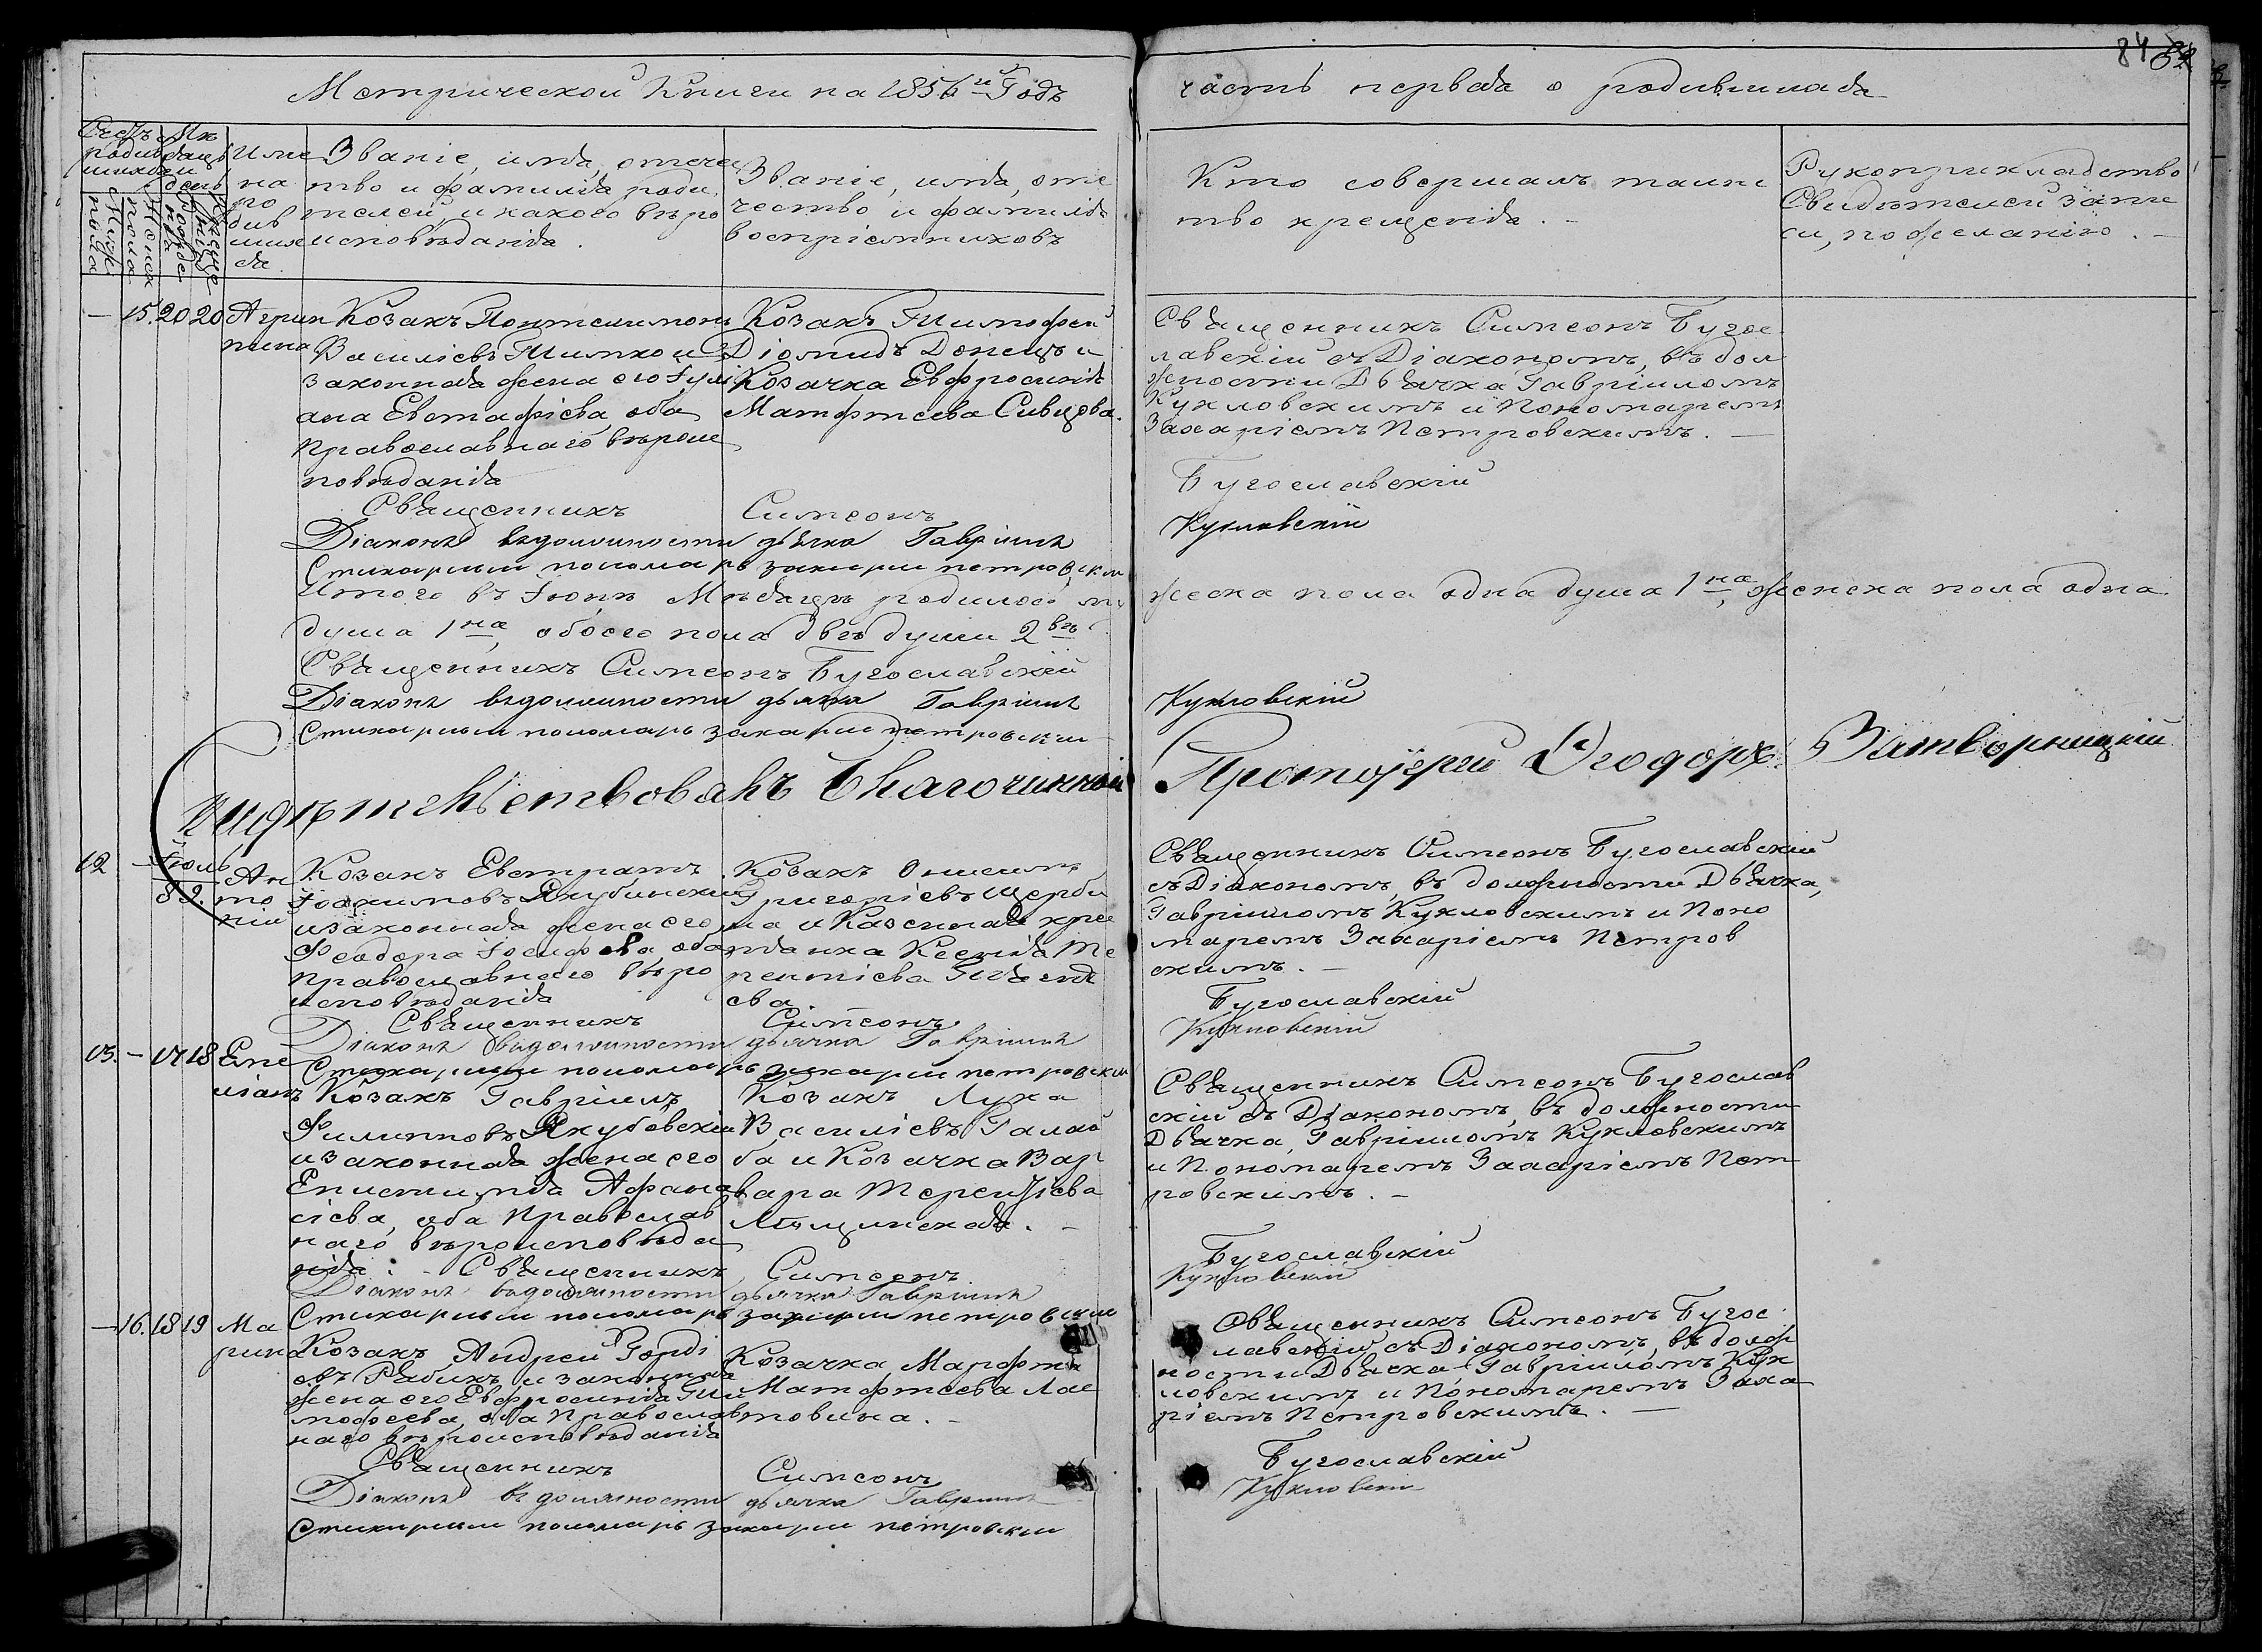 84
Метрической Книги на 1856й Годъ
часть первая о родившихся
Счетъ родив шихся
Мужеска пола
Женска пола
Мѣ сяцъ и день
рожде нія
креще нія
Име на ро див ших ся.
Званіе, имя, отече
ство и фамилія роди
телей, и какого вѣро
исповѣданія.
Званіе, имя, оте
чество и фамилія
воспріемниковъ
Кто совершалъ таинс
тво крещенія. –
Рукоприкладство
Свидѣтелей запи
си, по желанію. –
– 15. 20 20 Агрип
пина
Козакъ Понтелимонъ
Василіевъ Тимко и
законная жена его Іулі
ана Евстафіева, оба
Православнаго вѣроис
повѣданія
Козакъ Тимофей
Діомидъ Донецъ и
Козачка Евфросинія
Матфтеева Сивцова.
Священникъ Симеонъ Бугос
лавскій съ Діакономъ, въ дол
жности Дьячка Гавріиломъ
Кукловскимъ и Пономаремъ
Захаріемъ Петровскимъ. –
Священникъ Симеонъ Бугославскій
Діаконъ въ должности дьячка Гавріилъ Кукловскій
Стихарный пономарь Захарій Петровскій
Итого въ Іюнѣ Мѣсяцѣ родилось му жеска пола одна душа 1на, женска пола одна
душа 1на, обоего пола двѣ души 2вѣ
Священникъ Симеонъ Бугославскій
Діаконъ въ должности дьячка Гавріилъ Кукловскій
Стихарный пономарь Захарій Петровскій
Свидѣтельствовалъ Благочинный Протоіерей Ѳеодоръ Затворницкій
12 – Іюль
8 9. Ан
то
ній
Козакъ Евстратъ
Іоакимовъ Якубинскій
и законная жена его
Феодора Іосифова, оба
Православнаго вѣро
исповѣданія
Козакъ Онисимъ
Григоріевъ Щерби
на и Казенная крес
тьянка Ксенія Те
рентіева
ева.
Священникъ Симеонъ Бугославскій
съ Діакономъ, въ должности Дьячка,
Гавріиломъ Кукловскимъ и Поно
маремъ Захаріемъ Петров
скимъ. –
Священникъ Симеонъ Бугославскій
Діаконъ въ должности дьячка Гавріилъ Кукловскій
Стихарный пономарь Захарій Петровскій
13. – 17 18 Еме
ліанъ
Козакъ Гавріилъ
Филипповъ Якубовскій
и законная жена его
Епистимія Афана
сіева, оба Православ
наго вѣроисповѣда
нія. –
Козакъ Лука
Василіевъ Галай
ба и Козачка Вар
вара Терентіева
Мощинская. –
Священникъ Симеонъ Бугослав
скій съ Діакономъ, въ должности
Дьячка, Гавріиломъ Кукловскимъ
и Пономаремъ Захаріемъ Пет
ровскимъ. –
Священникъ Симеонъ Бугославскій
Діаконъ въ должности дьячка Гавріилъ Кукловскій
Стихарный пономарь Захарій Петровскій
– 16. 18 19 Ма
рина
Козакъ Андрей Горді
евъ Рябикъ и законная
жена его Евфросинія Ти
мофеева, оба Православ
наго вѣроисповѣданія
Козачка Марфта
Матфтеева Лас
товина. –
Священникъ Симеонъ Бугос
лавскій, съ Діакономъ, въ долж
ности Дьячка Гавріиломъ Кук
ловскимъ и Пономаремъ Заха
ріемъ Петровскимъ. –
Священникъ Симеонъ Бугославскій
Діаконъ въ должности дьячка Гавріилъ Кукловскій
Стихарный пономарь Захарій Петровскій